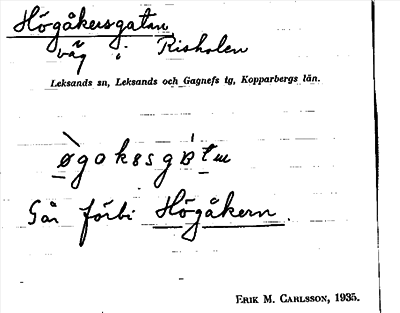 Högåkersgatan
väg i Risholen
Leksands sn, Leksands och Gagnefs tg, Kopparbergs län.
Går förbi Högåkern.
ERIK M. CARLSSON, 1935.